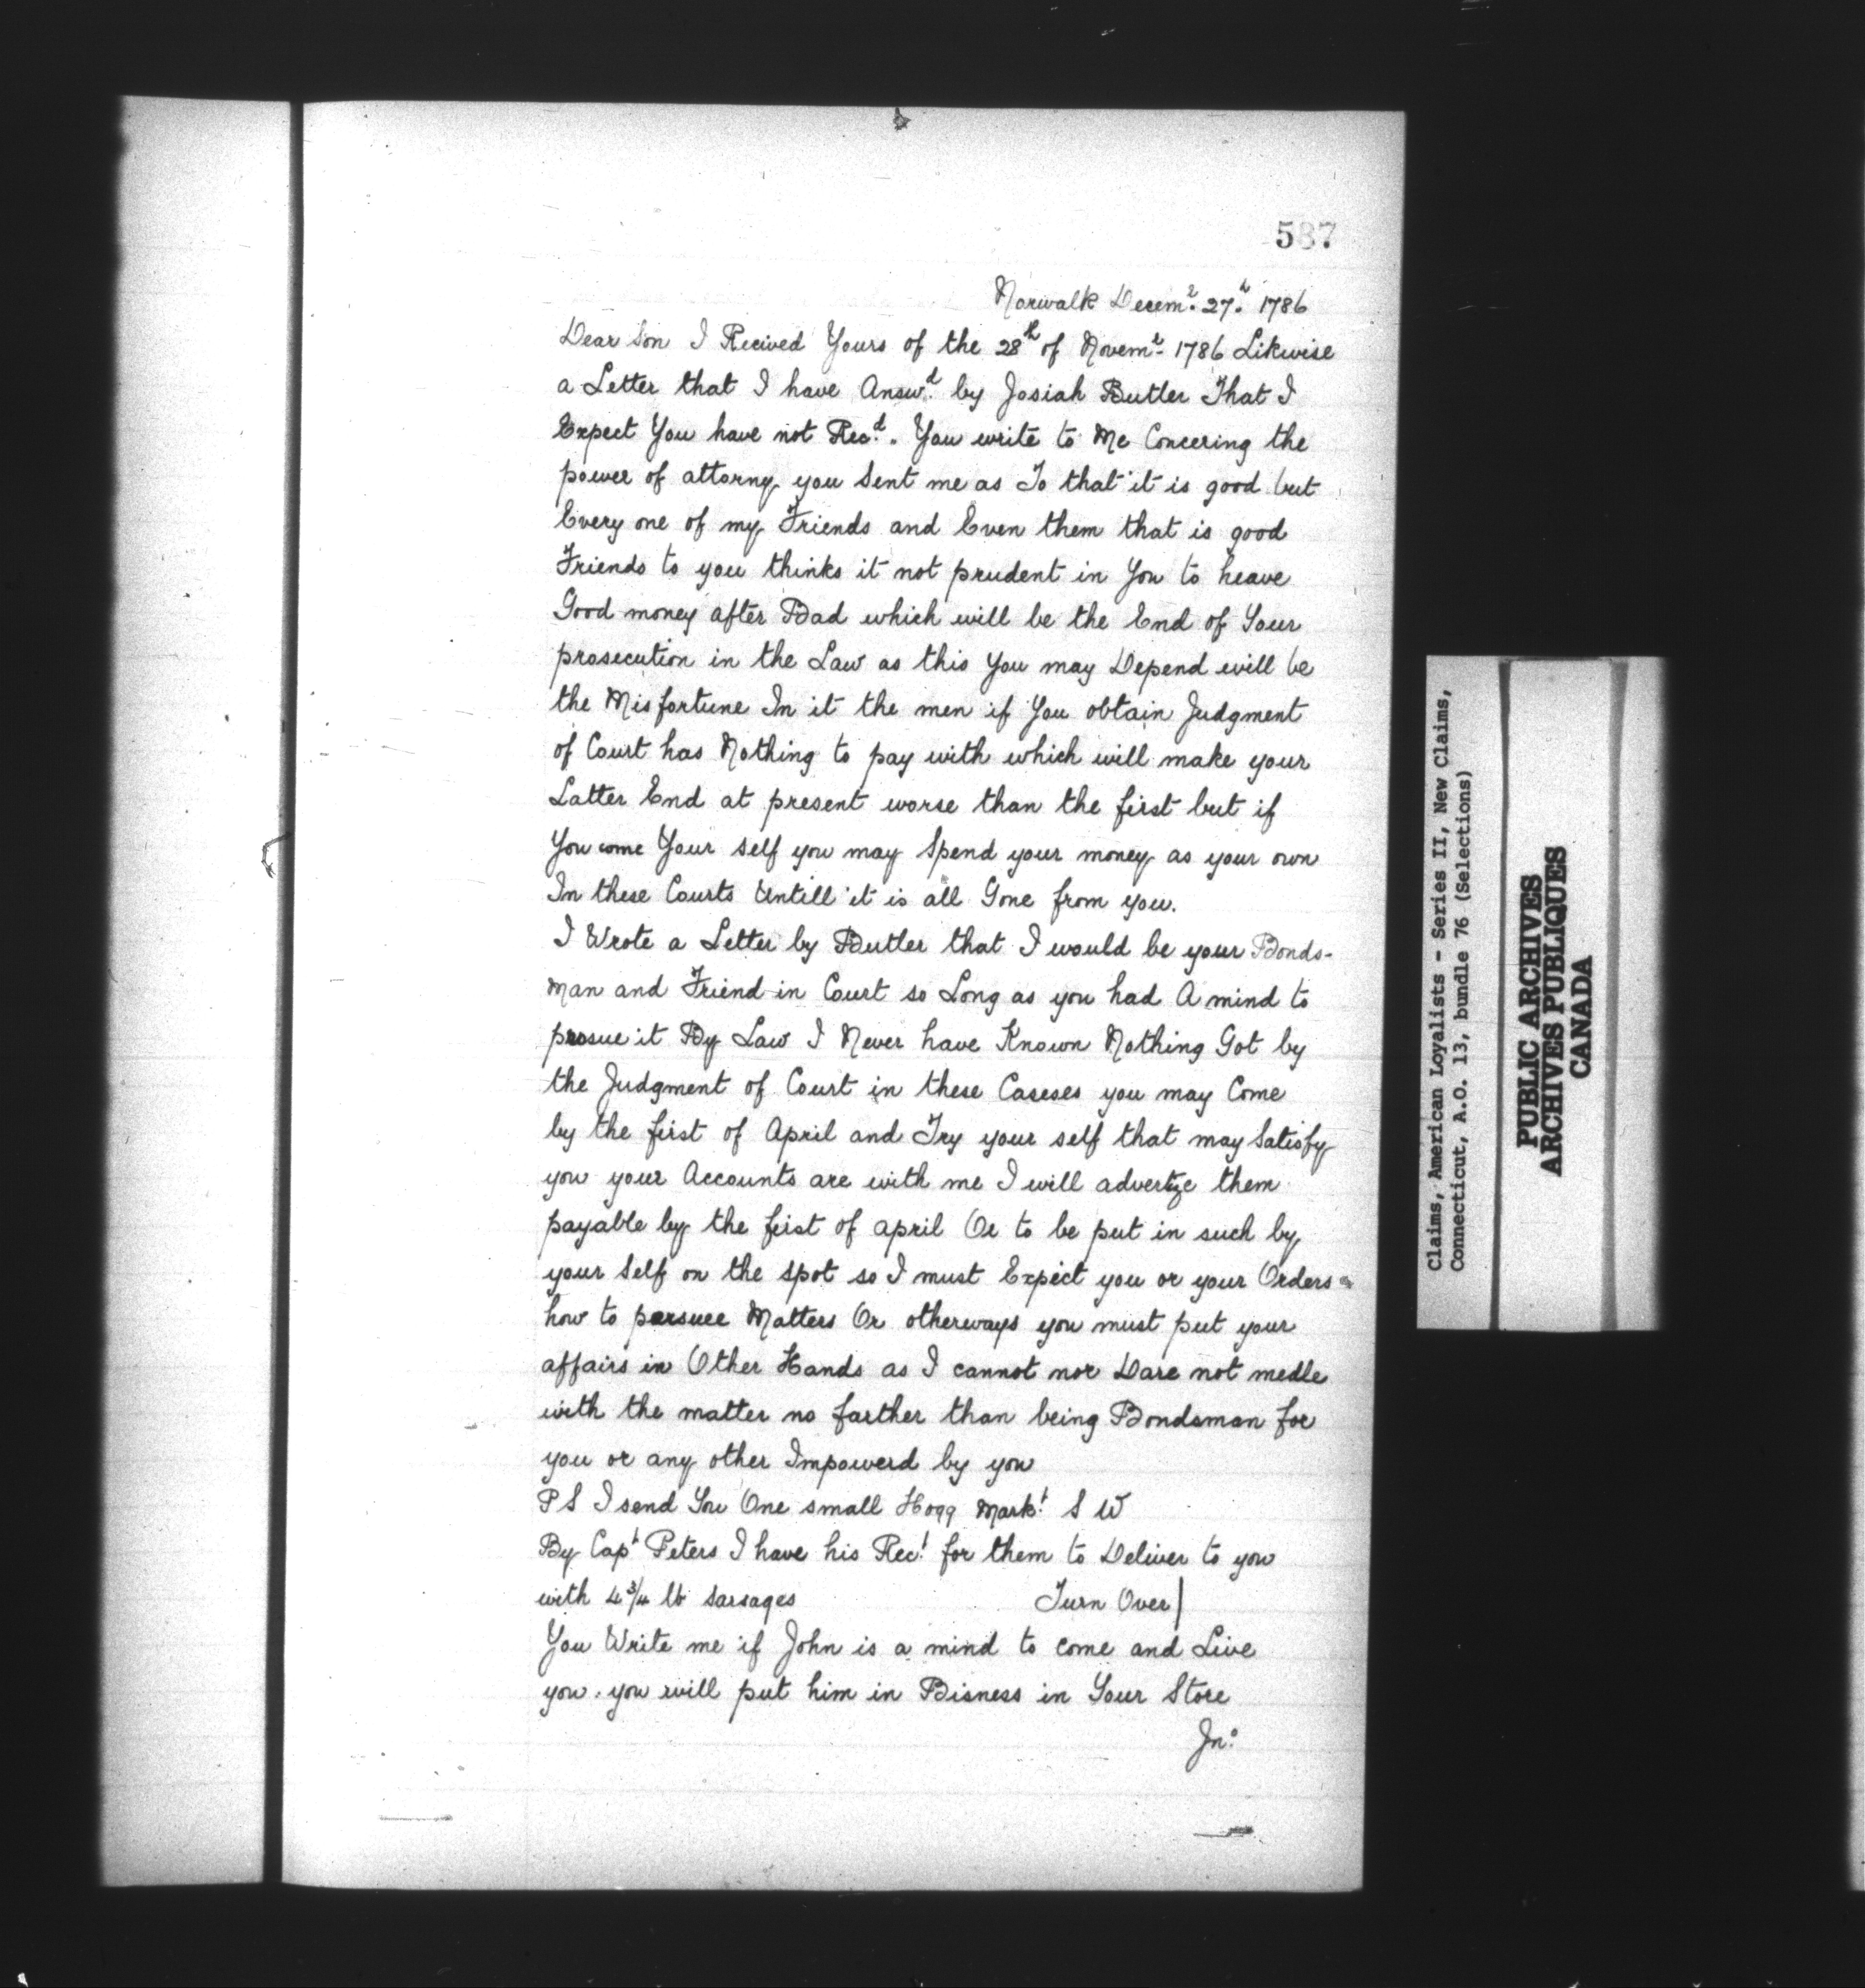 587
Norwalk Decem.r 27.h 1786
Dear Son I Recived Yours of the 28th of Novem.r 1786 Likwise
a Letter that I have Answ.d by Josiah Butler That I
Expect You have not Rec.d. You write to Me Concering the
power of attorny you Sent me as To that it is good but
Every one of my Friends and Even them that is good
Friends to you thinks it not prudent in You to heave
Good money after Bad which will be the End of Your
prosecution in the Law as this You may Depend will be
the Misfortune In it the men if You obtain Judgment
of Court has Nothing to pay with which will make your
Latter End at present worse than the first but if
You come Your self you may Spend your money as your own
In these Courts Untill it is all Gone from you.
I Wrote a Letter by Butler that I would be your Bonds-
man and Friend in Court so Long as you had A mind to
prosue it By Law I Never have Known Nothing Got by
the Judgment of Court in these Caseses you may Come
by the first of April and Try your self that may Satisfy
you your Accounts are with me I will advertize them
payable by the first of april Or to be put in such by
your Self on the spot so I must Expect you or your Orders
how to persuee Matters Or otherways you must put your
affairs in Other Hands as I cannot nor Dare not medle
with the matter no farther than being Bondsman for
you or any other Impowerd by you
P S I send You One small Hogg Mark.t S W
By Capt Peters I have his Rec.t for them to Deliver to you
with 4 3/4 lb sarsages Turn Over|
You Write me if John is a mind to come and Live
you. you will put him in Bisness in Your Store
Jn.o
Claims, American Loyalists - Series II, New Claims,
Connecticut, A.O. 13, bundle 76 (Selections)
PUBLIC ARCHIVES
ARCHIVES PUBLIQUES
CANADA